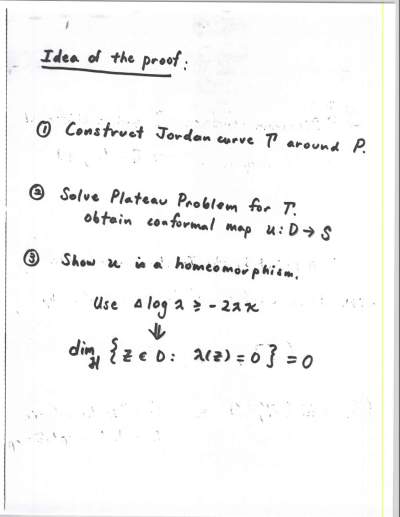 Idea of the proof:
① Construct Jordan curve Γ around P.
② Solve Plateau Problem for Γ.
obtain conformal map u: D → S
③ Show u is a homeomorphism.
Use Δ log λ ≥ -2λκ
⇓
dim_H { z ∈ D: λ(z) = 0 } = 0